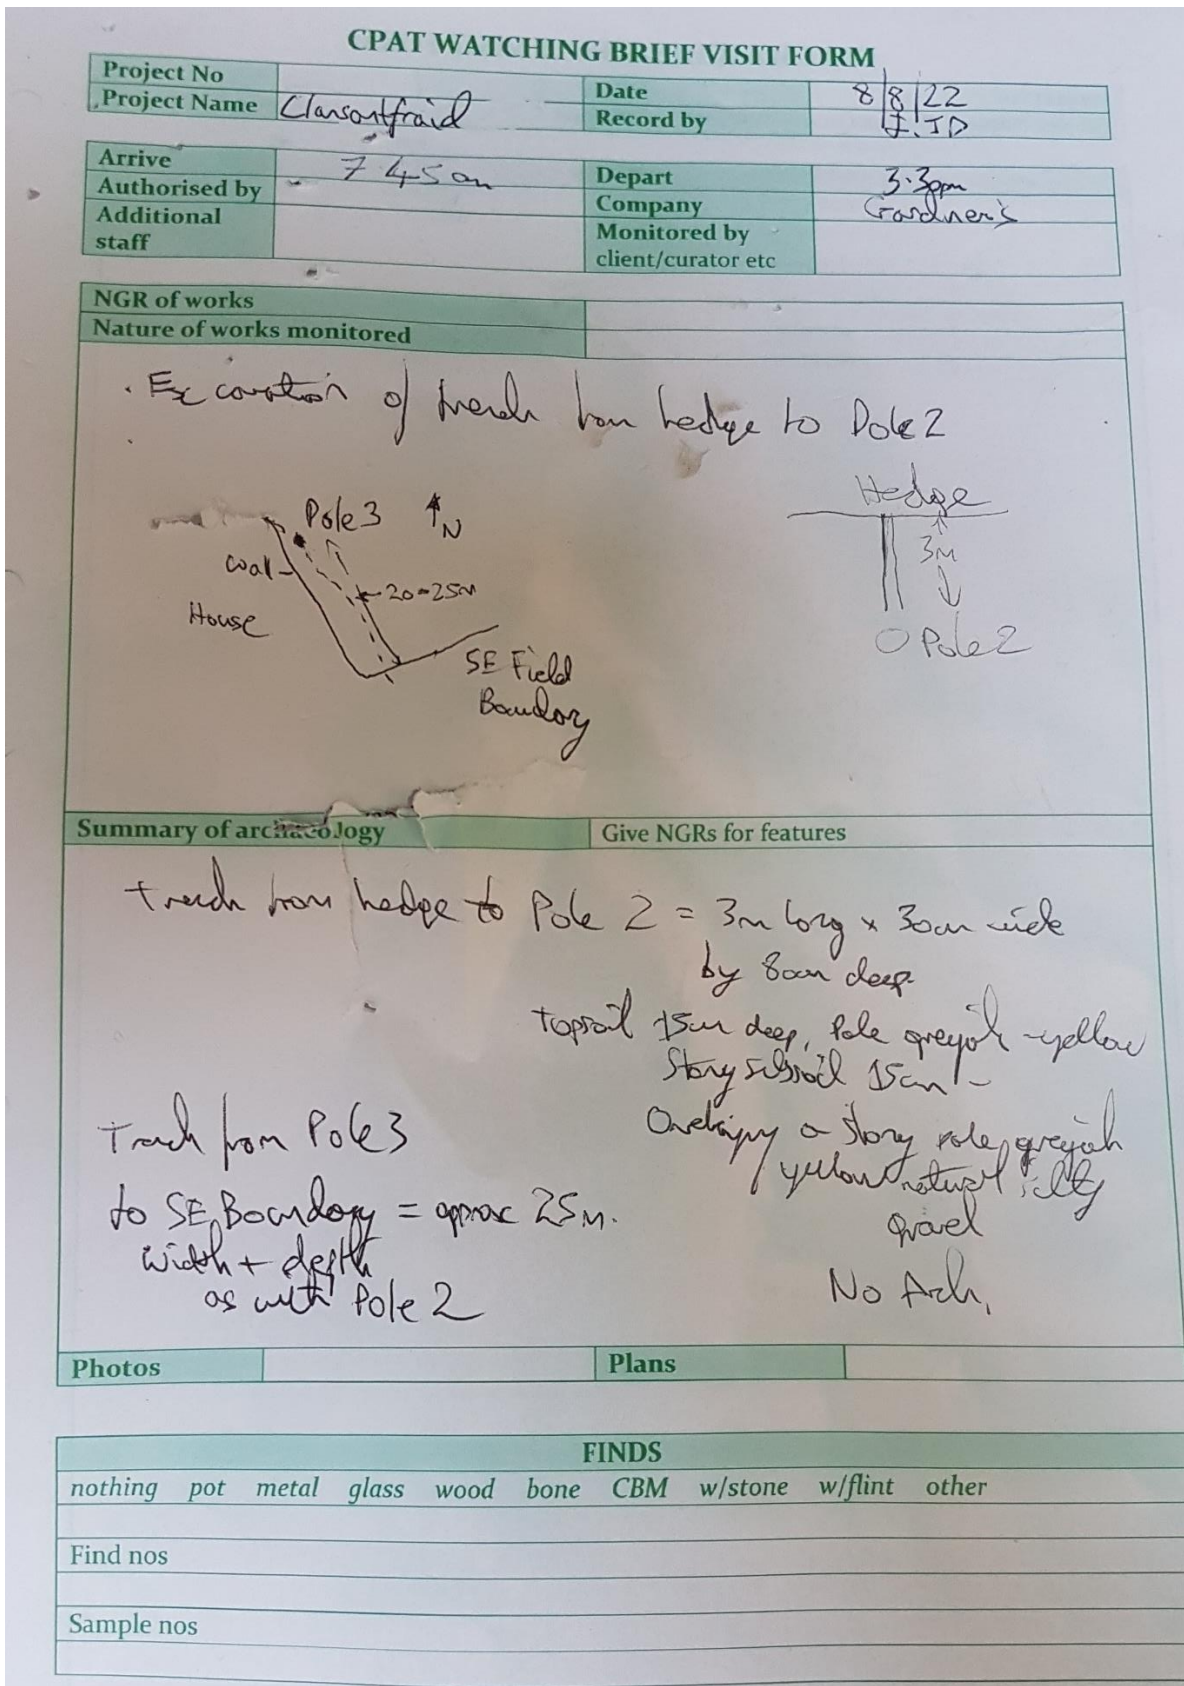 CPAT WATCHING BRIEF VISIT FORM
Project No
Project Name Clansantfraid
Date 8/8/22
Record by
Arrive 7 45am
Authorised by -
Additional staff
Depart 3.30pm
Company Gardner's
Monitored by
client/curator etc
NGR of works
Nature of works monitored
. Excavation of trench from hedge to Pole 2
Pole 3 N
Wall
20-25m
House
SE Field
Boundary
Hedge
3M
Pole 2
Summary of archaeology
Give NGRs for features
Trench from hedge to Pole 2 = 3m long x 30cm wide
by 80cm deep
Topsoil 15cm deep, Pale greyish-yellow
Stony subsoil 15cm -
Overlying a stony pale greyish
yellow natural silty
gravel
No Arch.
Trench from Pole 3
to SE Boundary = approx 25m.
Width + depth
as with Pole 2
Photos
Plans
FINDS
nothing pot metal glass wood bone CBM w/stone w/flint other
Find nos
Sample nos